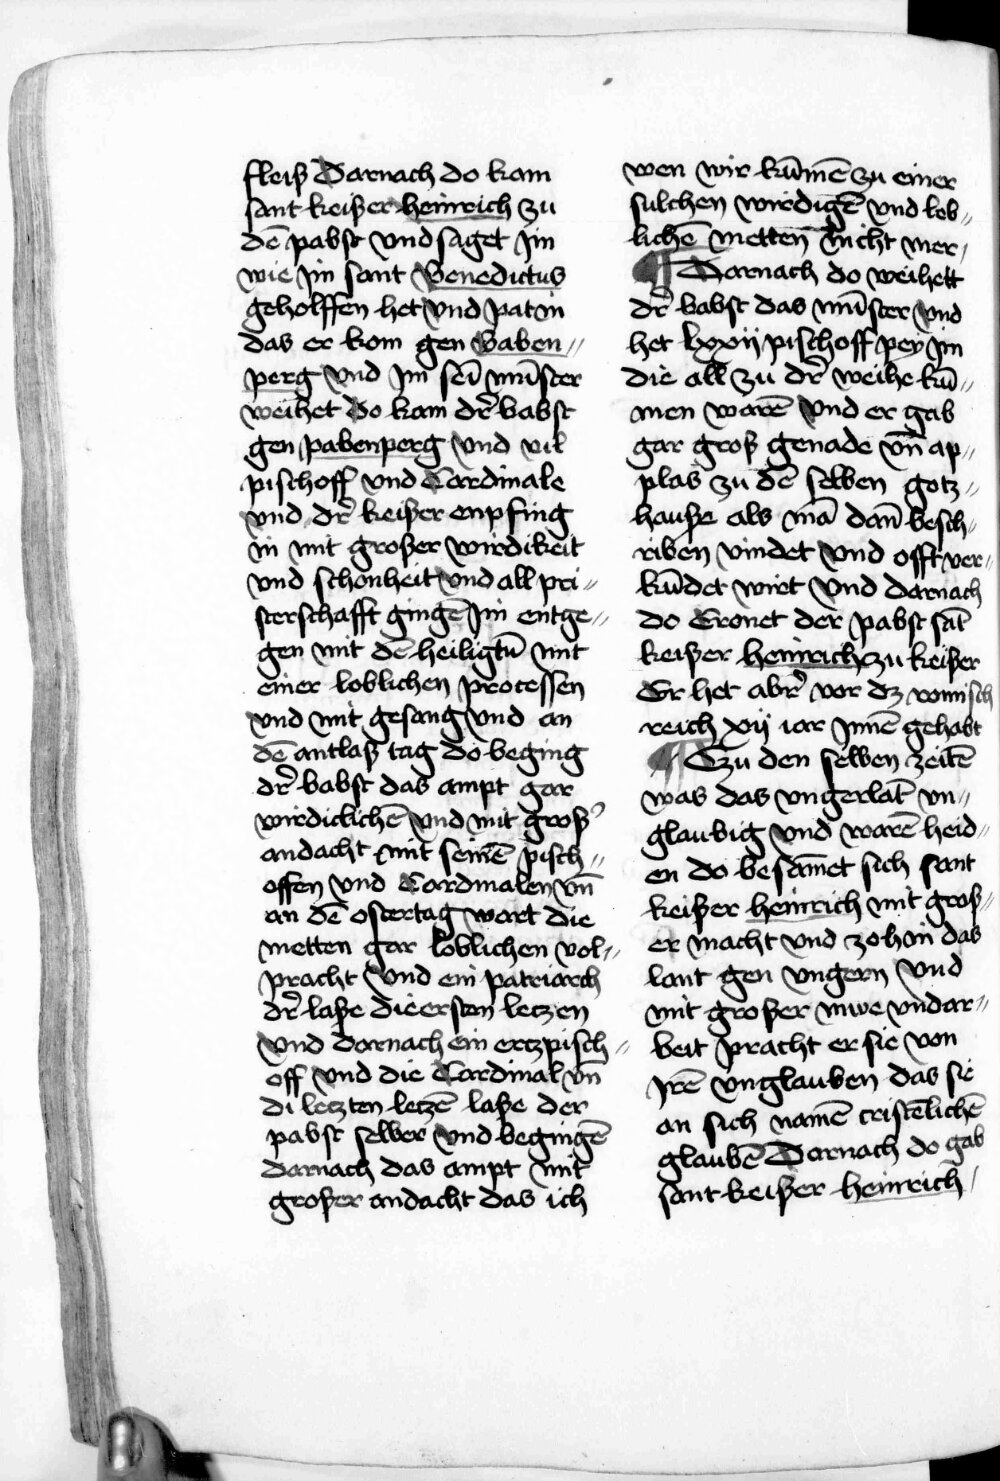 fleiß Darnach do kam
sant keißer heinrich zu
dē pabst vnd saget jm
wie jm sant Benedictus
geholffen het vnd pat in
das er kom gen Baben〃
perg vnd jm sei᷑ mūnster
weihet Do kam dr̄ babst
gen pabenperg vnd vil
pischoff vnd Cardinale
vnd dr̄ keißer enpfing
in mit großer wirdikeit
vnd schonheit vnd all pri〃
sterschafft gingē jm entge〃
gen mit dē heiligtū mit
einer loblichen processen
vnd mit gesang vnd an
dē antlaß tag do beging
dr̄ babst das ampt gar
wirdiclichē vnd mit groß᷑
andacht mit seinē pisch〃
offen vnd Cardinalen vn̄
an dē ostertag wart die
metten gar loblichen vol〃
pracht vnd ein patriarch
dr̄ laße die ersten letzen
vnd darnach ein ertzpisch〃
off vnd die Cardinal vn̄
di letzten letzē laße der
pabst selber vnd begingē
darnach das ampt mit
großer andacht das ich
wen wir kūmē zu einer
sulchen wirdigē vnd lob〃
lichē metten nicht mer/
¶ Darnach do weihett
dr̄ babst das mūnster vnd
het lxxij pischoff pey jm
die all zu dr̄ weihe kū〃
men warē vnd er gab
gar groß genade vn̄ ap〃
plas zu dē selben gotz〃
hauße als mā dan̄ besch〃
riben vindet vnd offt ver〃
kūdet wirt vnd darnach
do Cronet der pabst sāt
keißer heinrich zu keißer
Er het abr̄ vor dz romisch
reich xij iar jnnē gehabt
¶ Czu den selben zeitē
was das vngerlāt vn〃
glaubig vnd warē heid〃
en do besāmet sich sant
keißer heinrich mit groß〃
er macht vnd zoh in das
lant gen vngern vnd
mit großer mue vnd ar〃
beit pracht er sie von
jrē vnglauben das sie
an sich namē cristēlichē
glaubē Darnach do gab
sant keißer heinrich/